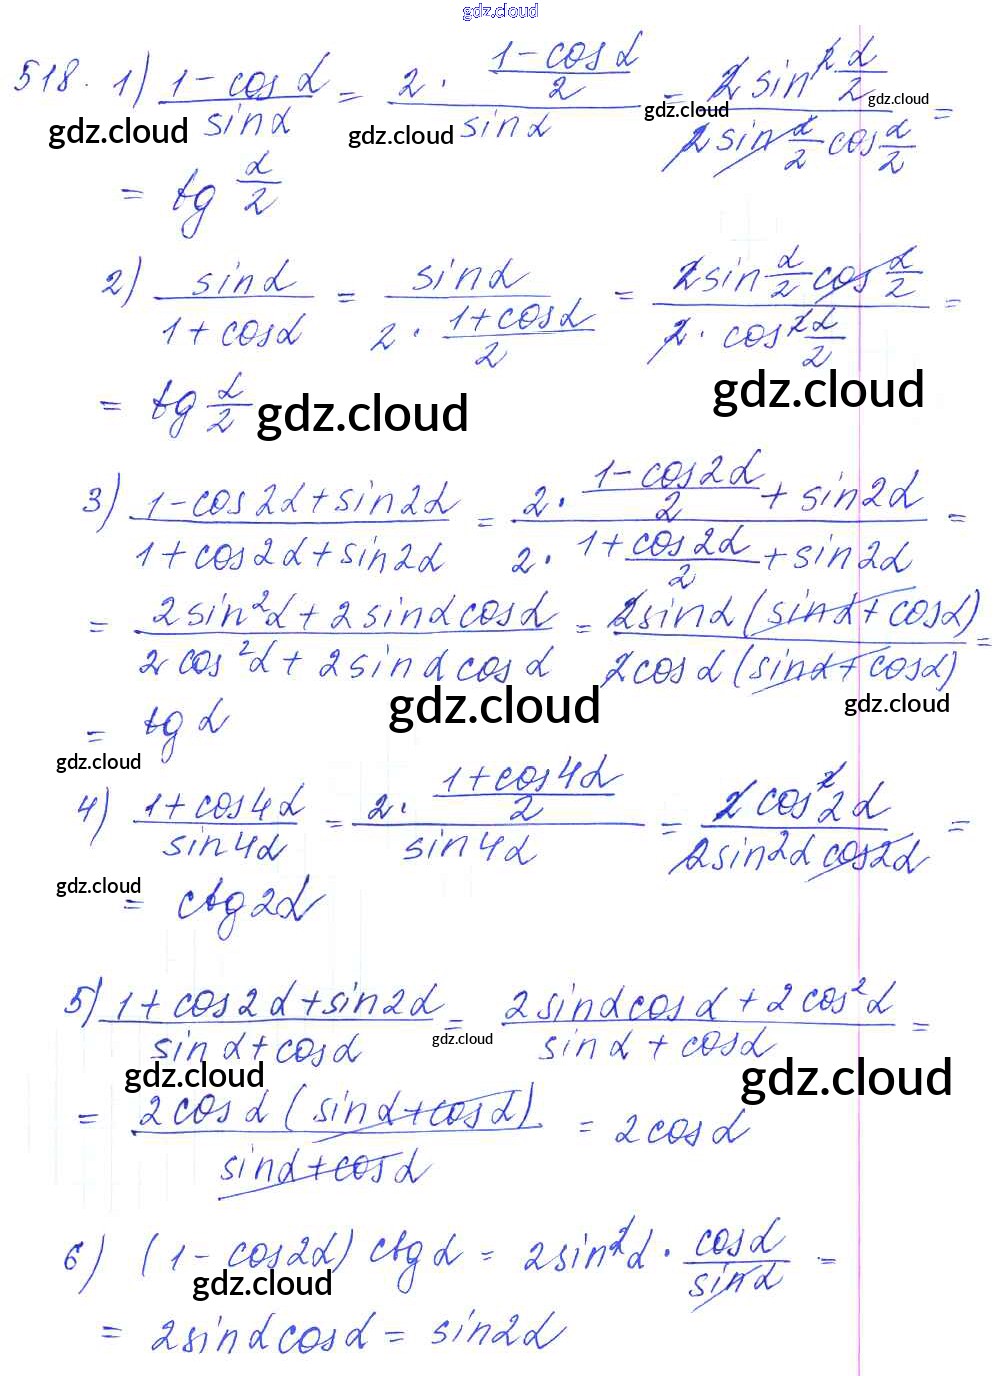 gdz.cloud
518. 1) (1-cosα)/(sinα) = (2·(1-cosα)/2)/(sinα) = (2sin²α/2)/(2sinα/2 cosα/2) =
gdz.cloud gdz.cloud gdz.cloud gdz.cloud
= tg α/2
2) (sinα)/(1+cosα) = (sinα)/(2·(1+cosα)/2) = (2sinα/2 cosα/2)/(2·cos²α/2) =
= tg α/2
gdz.cloud gdz.cloud
3) (1-cos2α+sin2α)/(1+cos2α+sin2α) = (2·(1-cos2α)/2+sin2α)/(2·1+cos2α/2+sin2α) =
= (2sin²α+2sinαcosα)/(2cos²α+2sinαcosα) = (2sinα(sinα+cosα))/(2cosα(sinα+cosα)) =
= tgα
gdz.cloud gdz.cloud
gdz.cloud
4) (1+cos4α)/(sin4α) = (2·(1+cos4α)/2)/(sin4α) = (2cos²2α)/(2sin2αcos2α) =
gdz.cloud
= ctg2α
5) (1+cos2α+sin2α)/(sinα+cosα) = (2sinαcosα+2cos²α)/(sinα+cosα) =
gdz.cloud
gdz.cloud gdz.cloud
= (2cosα(sinα+cosα))/(sinα+cosα) = 2cosα
6) (1-cos2α)ctgα = 2sin²α·(cosα)/(sinα) =
gdz.cloud
= 2sinαcosα = sin2α